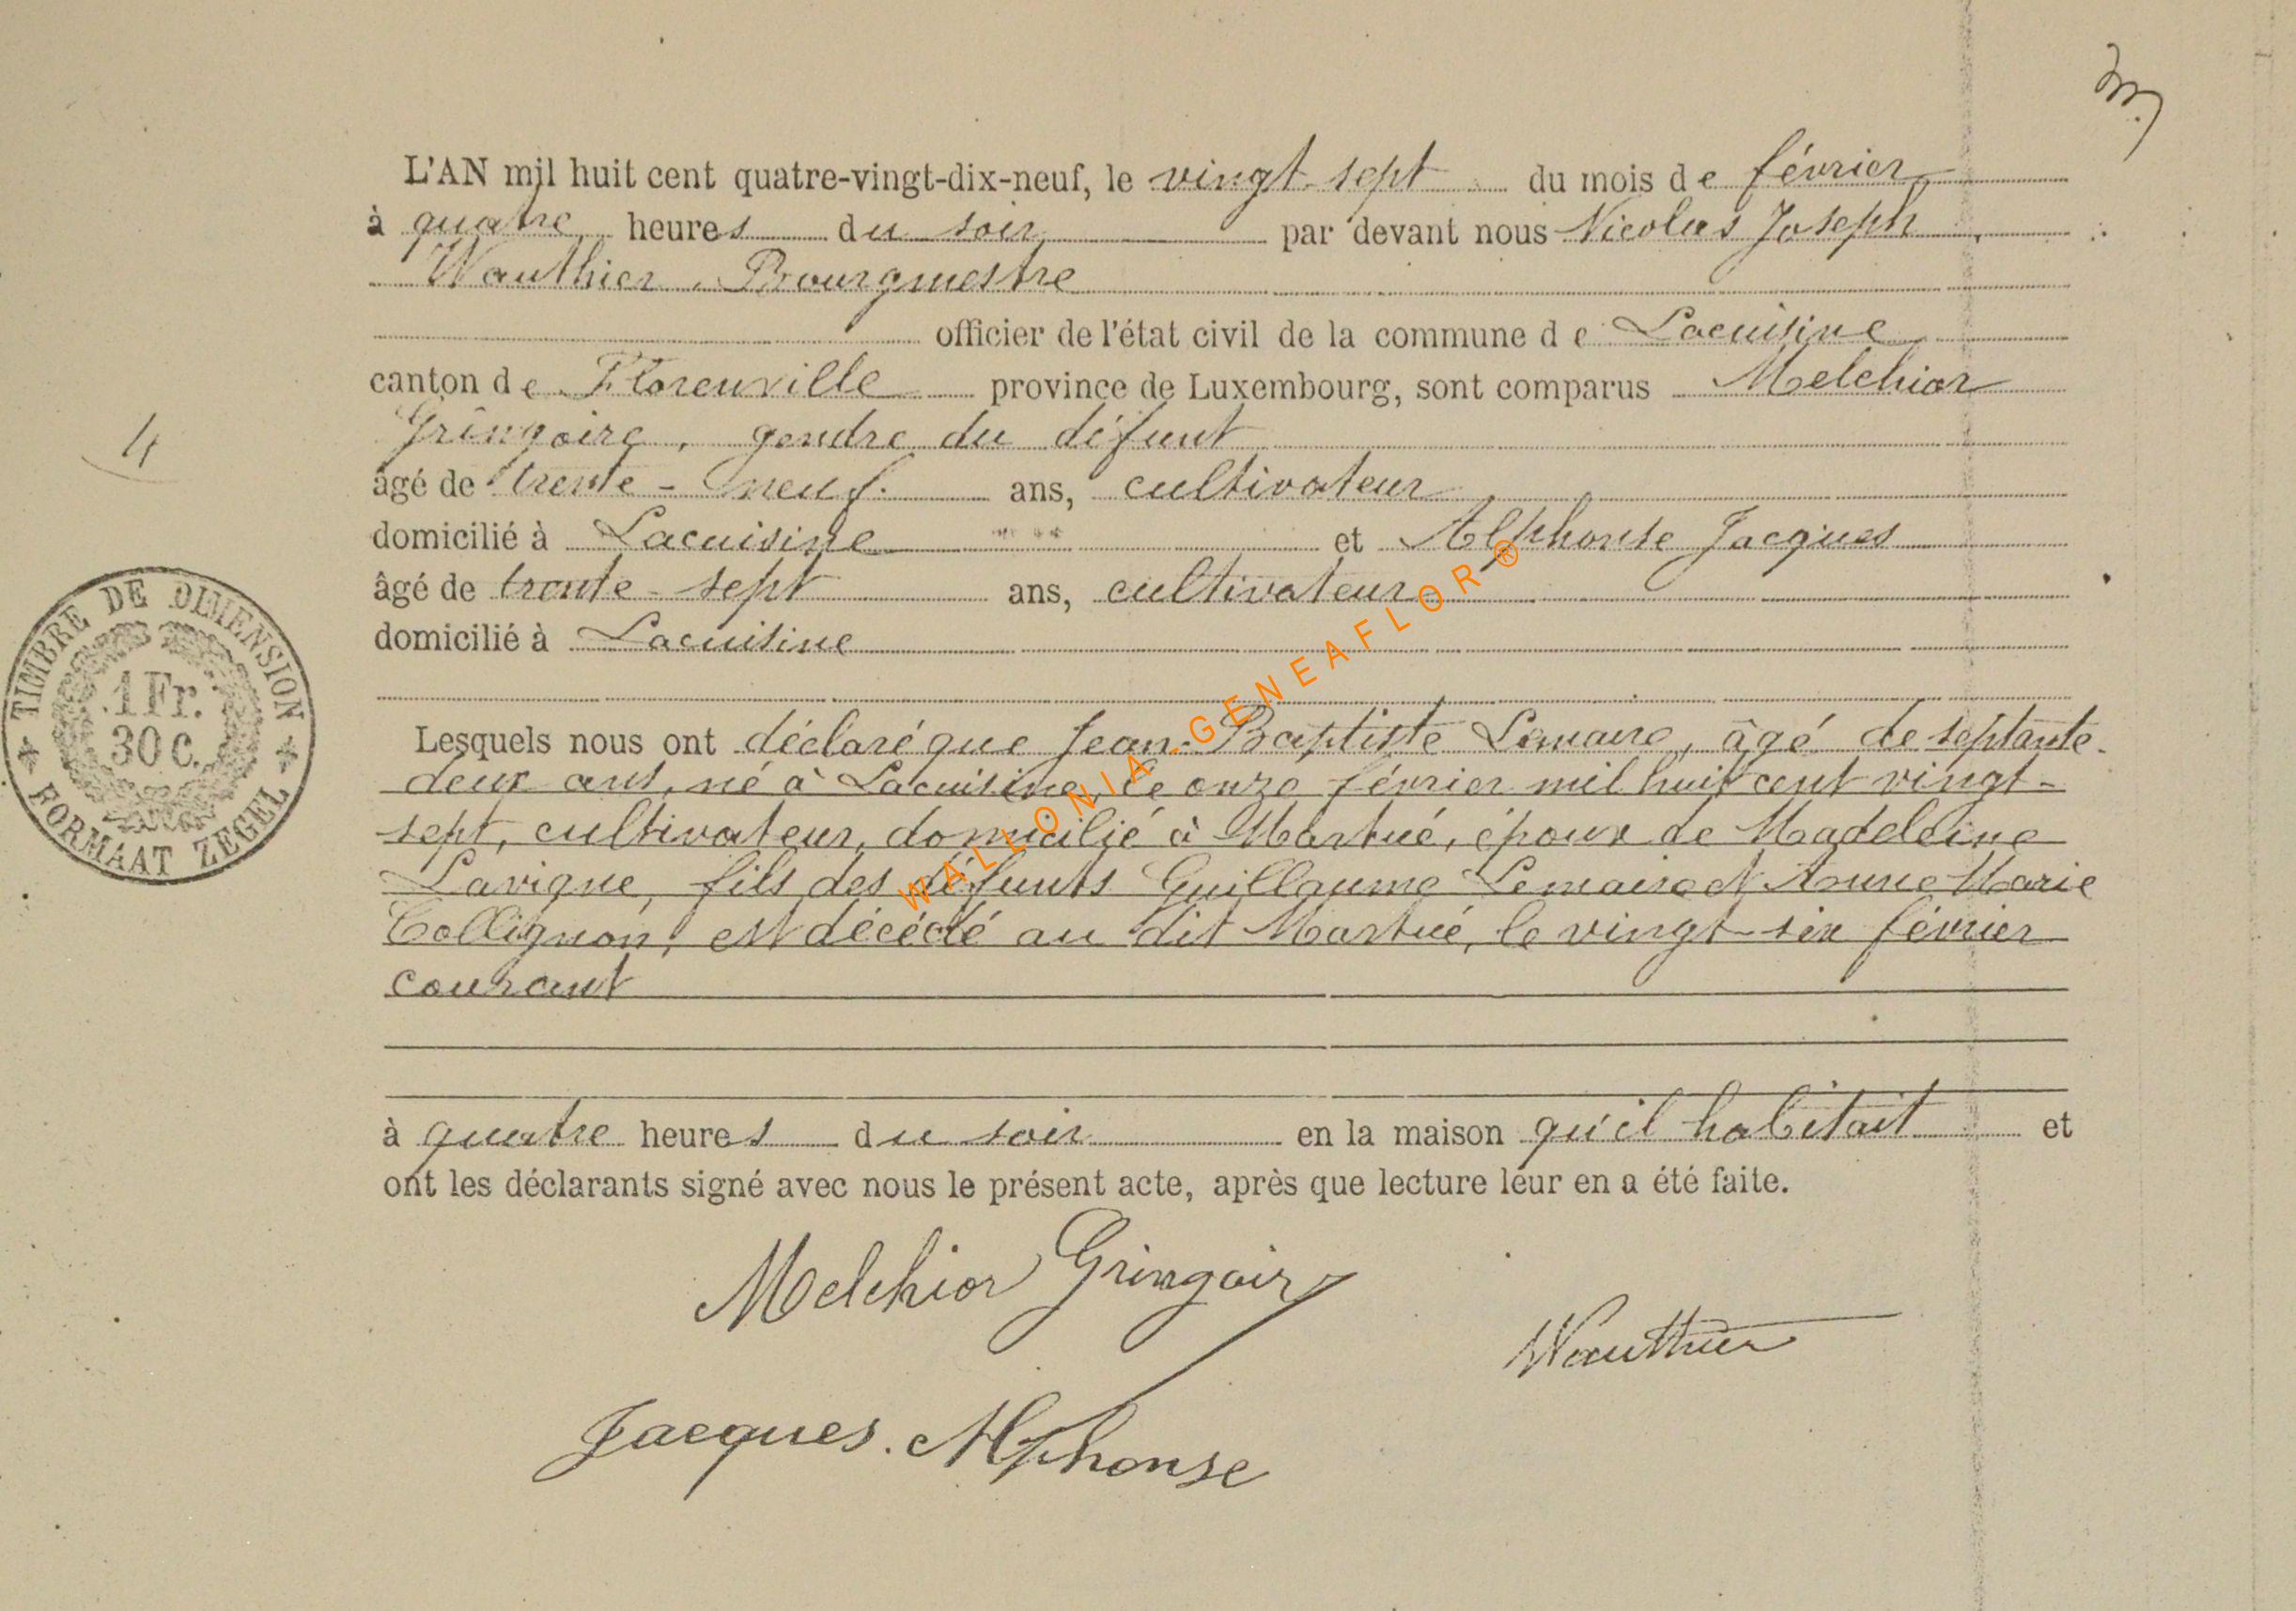 L'AN mil huit cent quatre-vingt-dix-neuf, le vingt-sept du mois de février
à quatre heures du soir par devant nous Nicolas Joseph
Wauthier, Bourgmestre
officier de l'état civil de la commune de Lacuisine
canton de Florenville province de Luxembourg, sont comparus Melchior
Gringoire, gendre du défunt
âgé de trente-neuf ans, cultivateur
domicilié à Lacuisine et Alphonse Jacques
âgé de trente-sept ans, cultivateur
domicilié à Lacuisine
Lesquels nous ont déclaré que Jean-Baptiste Lemaire, âgé de septante-
deux ans, né à Lacuisine, le onze février mil huit cent vingt-
sept, cultivateur, domicilié à Martué, époux de Madeleine
Lavigne, fils des défunts Guillaume Lemaire et Anne-Marie
Collignon, est décédé au dit Martué, le vingt-six février
courant
à quatre heures du soir en la maison qu'il habitait et
ont les déclarants signé avec nous le présent acte, après que lecture leur en a été faite.
Melchior Gringoire
Wauthier
Jacques. Alphonse
4
TIMBRE DE DIMENSION
1 Fr.
30 C.
FORMAAT ZEGEL
WALLONIA-GENEAFLOR®